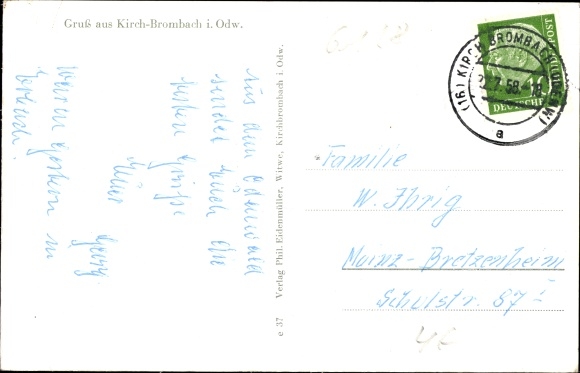 Gruß aus Kirch-Brombach i. Odw.
Aus dem Odenwald
sendet Euch die
besten Grüße
Euer Georg
Waren gestern in
Erbach.
Verlag Phil. Eidenmüller, Witwe, Kirchbrombach i. Odw.
e 37
(16) KIRCH BROMBACH (ODENW)
.7.58.-18
a
DEUTSCHE
POST
10
Familie
W. Ihrig
Mainz-Bretzenheim
Schulstr. 87 I